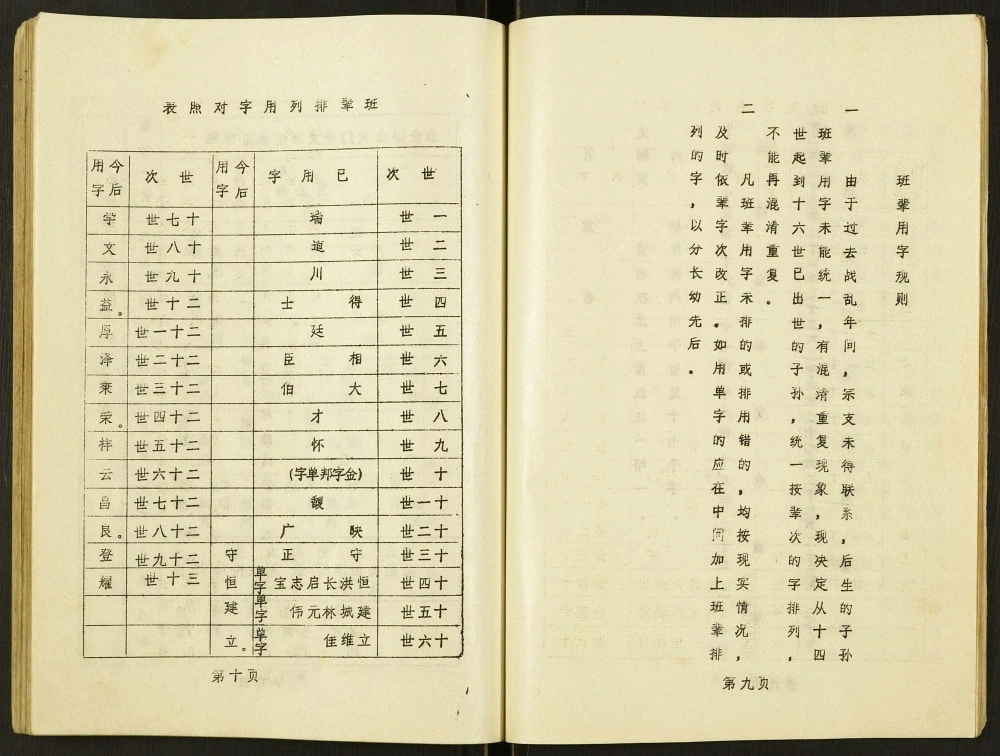 班辈用字规则
一
由于过去战乱年间，宗支未得联系，后生的子孙
班辈用字未能统一，有混淆重复现象，现决定从十四
世起到十六世已出世的子孙，统一按辈次的字排列，
不能再混淆重复。
二
凡班辈用字未排的或排用错的，均按现实情况，
及时依辈字次改正。如用单字的应在中间加上班辈排
列的字，以分长幼先后。
第九页
班辈排列用字对照表
世次 已用字 今后用字 世次 今后用字
一世 瑞 十七世 学
二世 道 十八世 文
三世 川 十九世 永
四世 得士 二十世 益。
五世 廷 二十一世 厚
六世 相臣 二十二世 泽
七世 大伯 二十三世
八世 才 二十四世 荣。
九世 怀 二十五世 祥
十世 (金字邦单字) 二十六世 云
十一世 馥 二十七世 昌
十二世 映广 二十八世 良。
十三世 守正 守 二十九世 登
十四世 恒洪长启志宝单字 恒 三十世 耀
十五世 建城林元伟单字 建
十六世 立维佳单字 立。
第十页